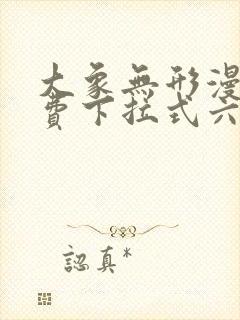 大象無形漫
費下拉式六
認真*